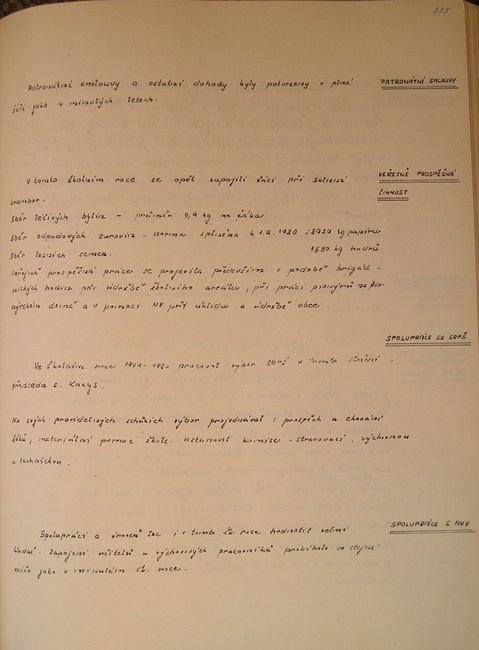 225
PATRONÁTNÍ SMLOUVY
Patronátní smlouvy a ostatní dohody byly potvrzeny v plné
šíři jako v minulých letech.
VEŘEJNĚ PROSPĚŠNÁ
ČINNOST
V tomto školním roce se opět zapojili žáci při sklizni
brambor.
Sběr léčivých bylin - průměr 0,4 kg na žáka
Sběr odpadových surovin - norma splněna k 1.2. 1980 : 2020 kg papíru
1550 kg hadrů
Sběr lesních semen.
Veřejně prospěšná práce se projevila především v podobě brigád-
nických hodin při údržbě školního areálu, při práci pionýrů na pio-
nýrském domě a v pomoci NV při úklidu a údržbě obce.
SPOLUPRÁCE SE SRPŠ
Ve školním roce 1979-1980 pracoval výbor SRPŠ v tomto složení -
předseda s.
Na svých pravidelných schůzích výbor projednával : prospěch a chování
žáků, materiální pomoc škole. Ustanovil komise - stravovací, výchovnou
a technickou.
SPOLUPRÁCE S MNV
Spolupráci a úroveň lze i v tomto šk. roce hodnotit velmi
kladně. Zapojení učitelů a výchovných pracovníků probíhalo ve stejné
míře jako v minulém šk. roce.